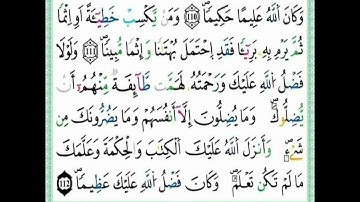 وَكَانَ اَ۬للَّهُ عَلِيماً حَكِيماًۖ ١١٠ وَمَنْ يَّكْسِبْ خَطِيٓـَٔةً اَوِ اِثْماً
ثُمَّ يَرْمِ بِهِۦ بَرِيٓـٔاً فَقَدِ اِ۪حْتَمَلَ بُهْتَٰناً وَإِثْماً مُّبِيناًۖ ١١١ وَلَوْلَا
فَضْلُ اُ۬للَّهِ عَلَيْكَ وَرَحْمَتُهُۥ لَهَمَّت طَّآئِفَةٞ مِّنْهُمُۥٓ أَنْ
يُّضِلُّوكَۖ وَمَا يُضِلُّونَ إِلَّآ أَنفُسَهُمْ وَمَا يَضُرُّونَكَ مِن
شَےْءٖۖ وَأَنزَلَ اَ۬للَّهُ عَلَيْكَ اَ۬لْكِتَٰبَ وَالْحِكْمَةَ وَعَلَّمَكَ
مَا لَمْ تَكُن تَعْلَمُۖ وَكَانَ فَضْلُ اُ۬للَّهِ عَلَيْكَ عَظِيماًۖ ١١٢